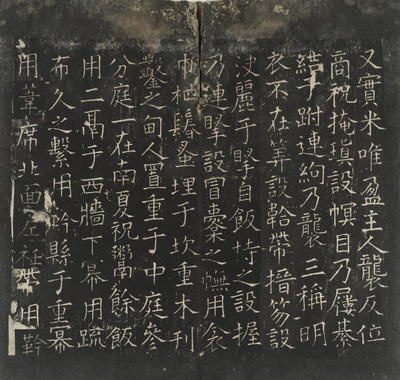 又實米唯盈主人襲反位
商祝掩瑱設幎目乃屨綦
結于跗連絇乃襲三稱明
衣不在筭設韐帶搢笏設
決麗于掔自飯持之設握
乃連掔設冒櫜之幠用衾
巾柶鬊蚤埋于坎重木刊
鑿之甸人置重于中庭參
分庭一在南夏祝鬻餘飯
用二鬲于西牆下冪用疏
布久之繫用靲縣于重冪
用葦席北面左衽帶用靲